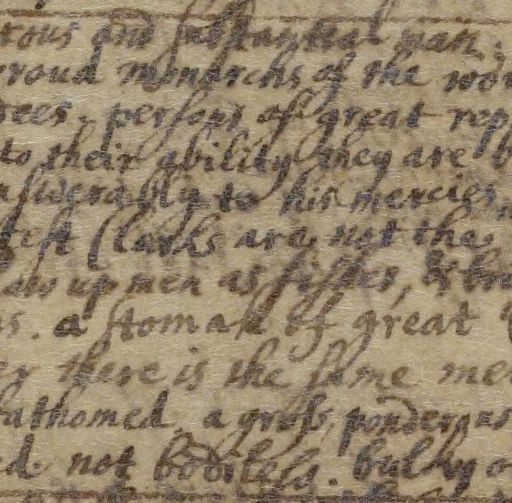 rous and substantial man,
proud monarchs of the wor
rees. persons of great rep
to their ability they are b
answerably to his mercies.
test Clarks are not the
up men as fishes, &
s. a stomak of great
er there is the same me
fathomed. a gross ponderous
ed. not bodily. bulky